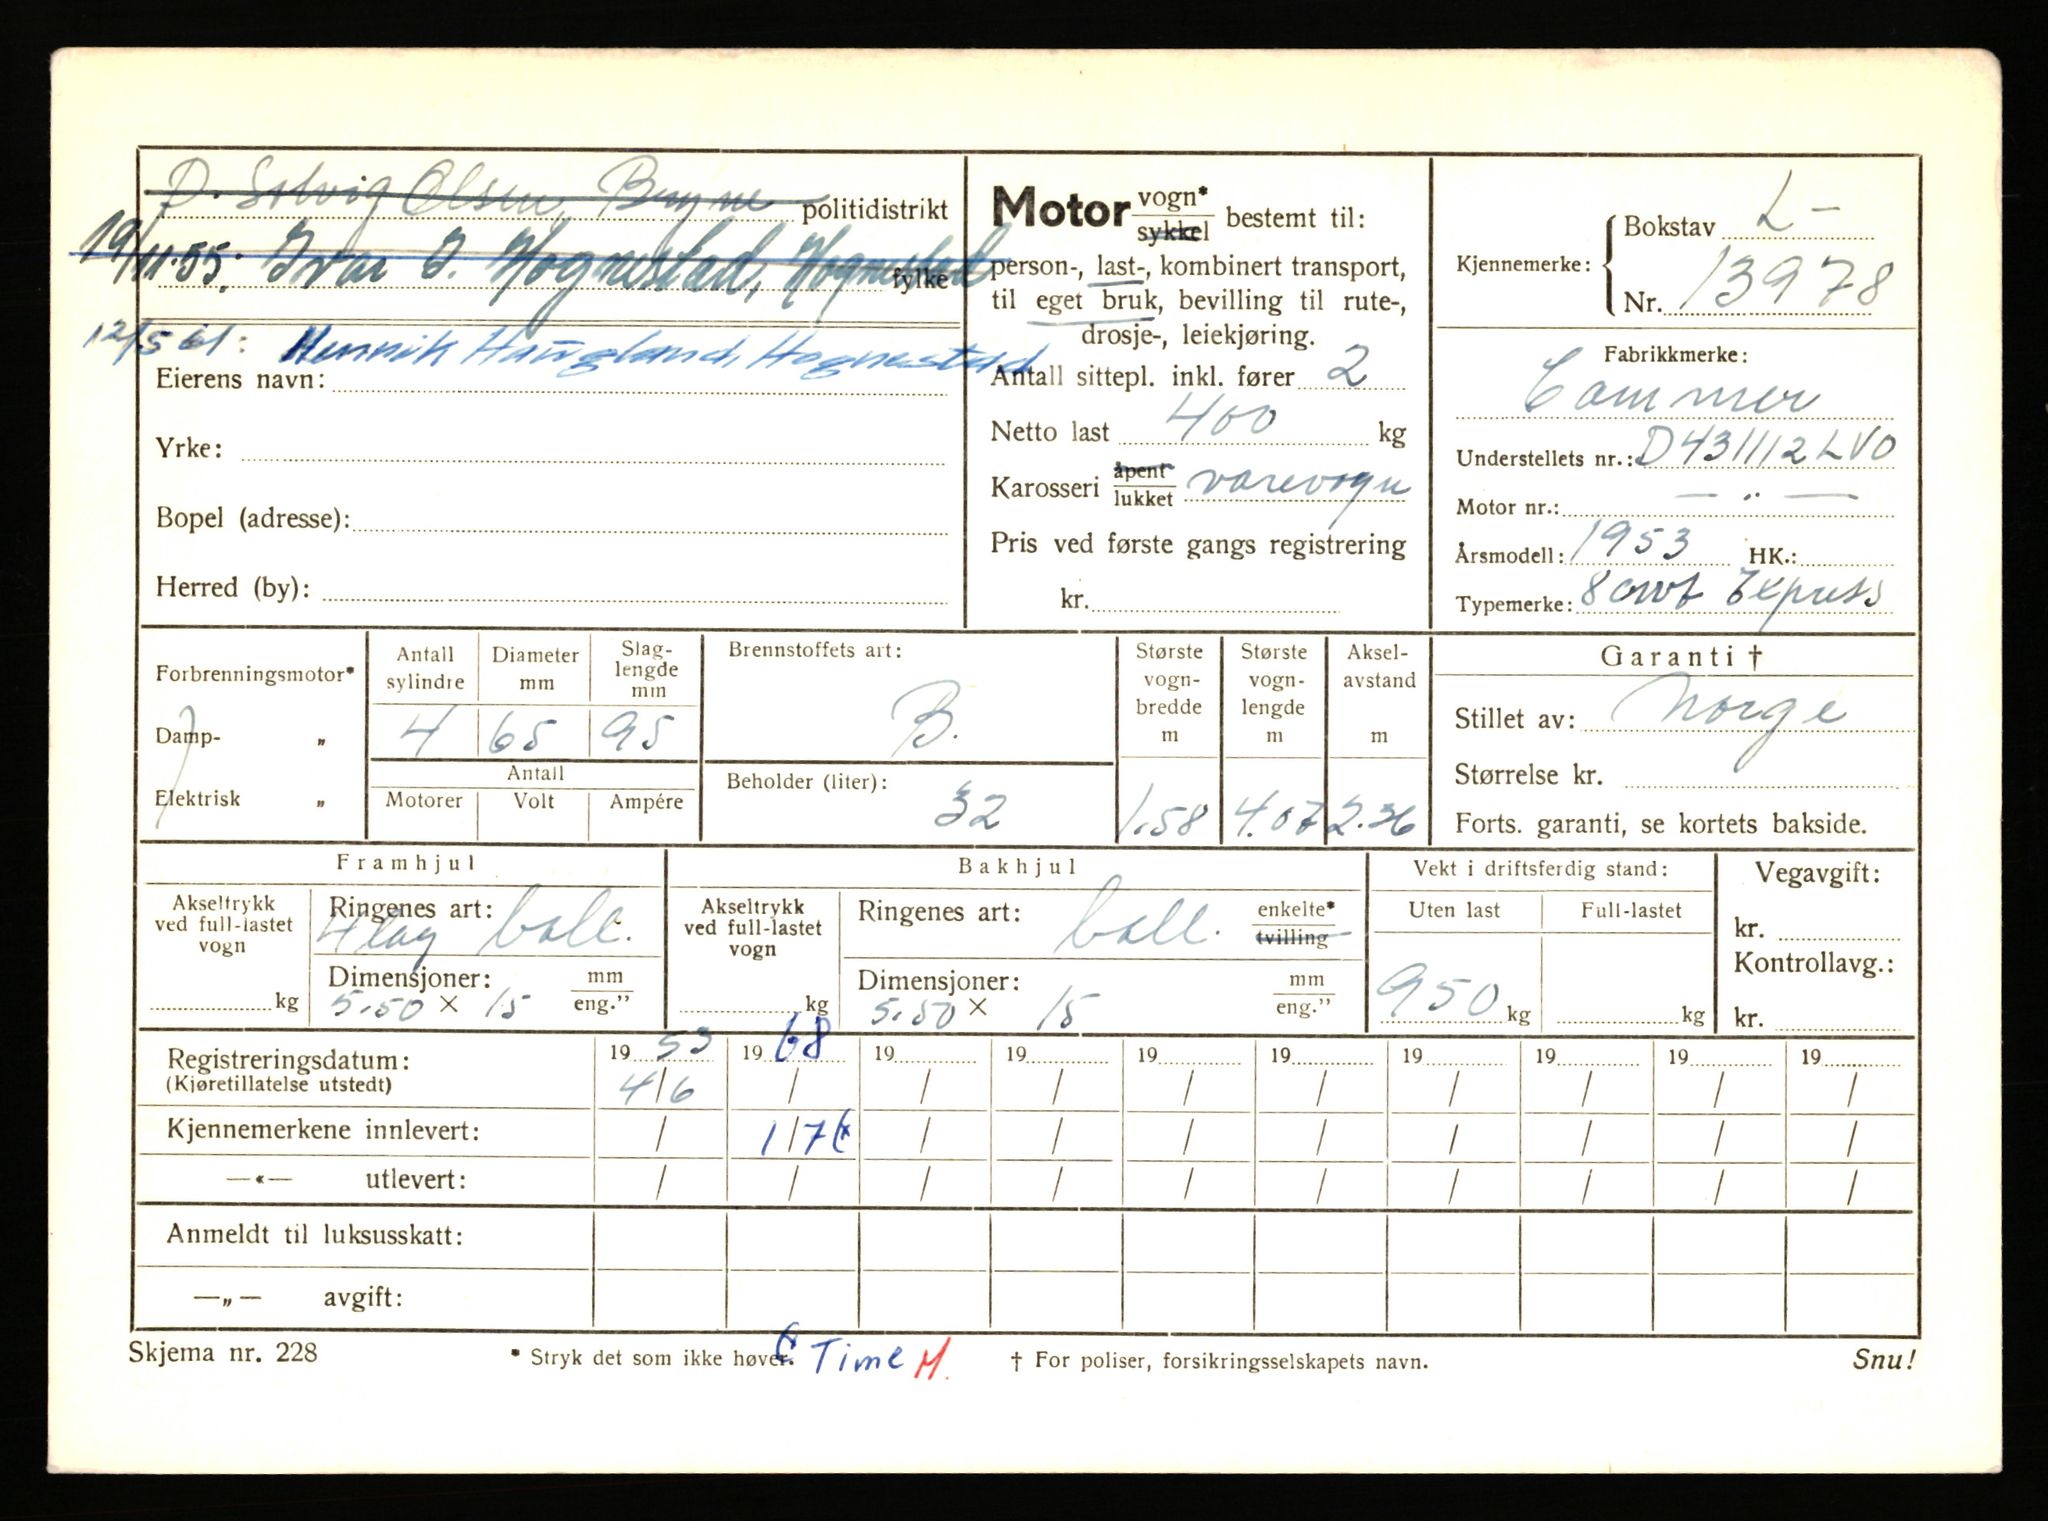 D. Solvig Olsen, Bryne politidistrikt
19/11-55: Ivar J. Hognestad, Hognestad fylke
12/5 61: Henrik Haugland, Hognestad
Eierens navn:
Yrke:
Bopel (adresse):
Herred (by):
Motor vogn* sykkel bestemt til:
person-, last-, kombinert transport,
til eget bruk, bevilling til rute-,
drosje-, leiekjøring.
Antall sittepl. inkl. fører 2
Netto last 400 kg
Karosseri åpent lukket varevogn
Pris ved første gangs registrering
kr.
Kjennemerke: Bokstav L-
Nr. 13978
Fabrikkmerke:
Commer
Understellets nr.: D431112LVO
Motor nr.: — „ —
Årsmodell: 1953 HK.:
Typemerke: 8 cwt Express
Forbrenningsmotor*
Damp- „
Elektrisk „
Antall sylindre Diameter mm Slag-lengde mm
4 65 95
Antall
Motorer Volt Ampére
Brennstoffets art:
B.
Beholder (liter):
32
Største vogn-bredde m
1.58
Største vogn-lengde m
4.07
Aksel-avstand m
2.36
Garanti †
Stillet av: Norge
Størrelse kr.
Forts. garanti, se kortets bakside.
Framhjul
Akseltrykk ved full-lastet vogn
kg
Ringenes art:
4 lag ball.
Dimensjoner: mm
5.50 x 15 eng.”
Bakhjul
Akseltrykk ved full-lastet vogn
kg
Ringenes art: ball. enkelte* tvilling
Dimensjoner: mm
5.50 x 15 eng.”
Vekt i driftsferdig stand:
Uten last Full-lastet
950 kg kg
Vegavgift:
kr.
Kontrollavg.:
kr.
Registreringsdatum: 19 53 19 68 19 19 19 19 19 19 19 19
(Kjøretillatelse utstedt) 4/6 / / / / / / / / /
Kjennemerkene innlevert: / 1/7 (x / / / / / / / /
—«— utlevert: / / / / / / / / / /
Anmeldt til luksusskatt:
—„— avgift:
Skjema nr. 228 * Stryk det som ikke høver. (x Time M. † For poliser, forsikringsselskapets navn. Snu!